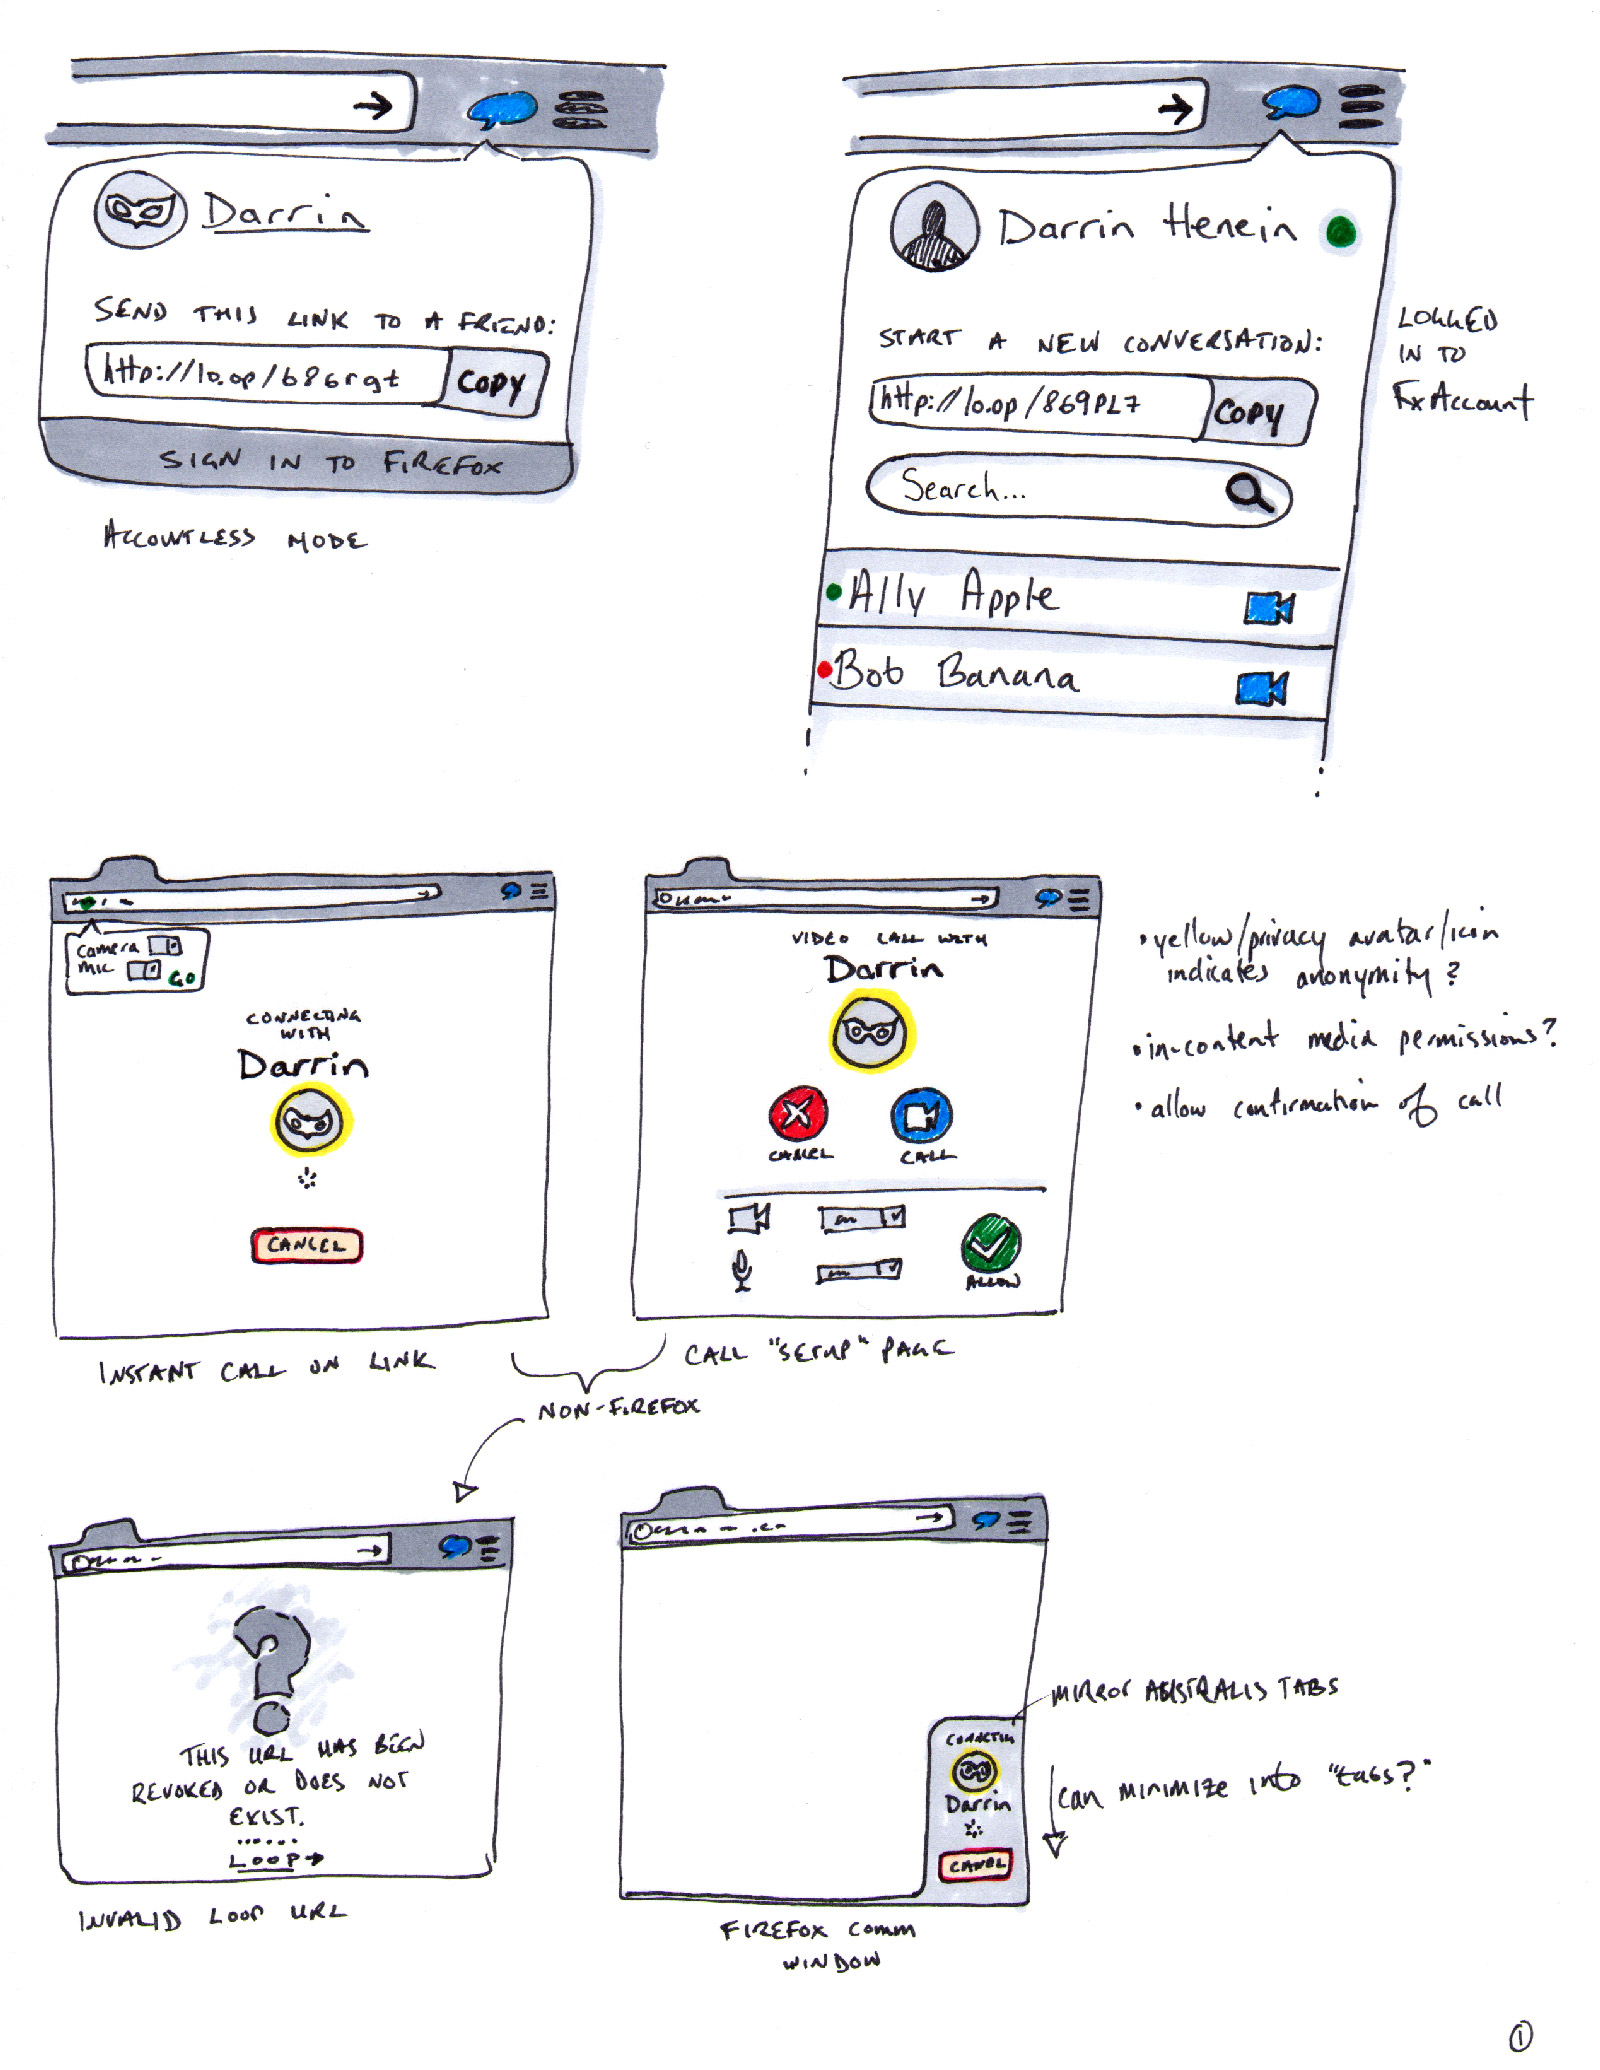 Darrin
SEND THIS LINK TO A FRIEND:
http://lo.op/686rgt
COPY
SIGN IN TO FIREFOX
ACCOUNTLESS MODE
Darrin Henein
START A NEW CONVERSATION:
http://lo.op/869PL7
COPY
Search...
Ally Apple
Bob Banana
LOGGED
IN TO
FxAccount
Camera
MIC
GO
CONNECTING
WITH
Darrin
CANCEL
INSTANT CALL ON LINK
VIDEO CALL WITH
Darrin
CANCEL
CALL
ALLOW
CALL "SETUP" PAGE
• yellow/privacy avatar/icon
indicates anonymity?
• in-content media permissions?
• allow confirmation of call
NON-FIREFOX
THIS URL HAS BEEN
REVOKED OR DOES NOT
EXIST.
LOOP→
INVALID LOOP URL
MIRROR AUSTRALIS TABS
Darrin
CANCEL
can minimize into "tabs?"
FIREFOX COMM
WINDOW
1